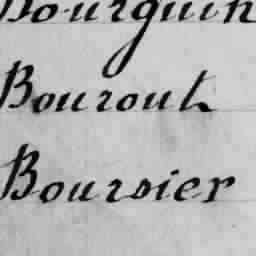 Bourguin
Bourout
Boursier